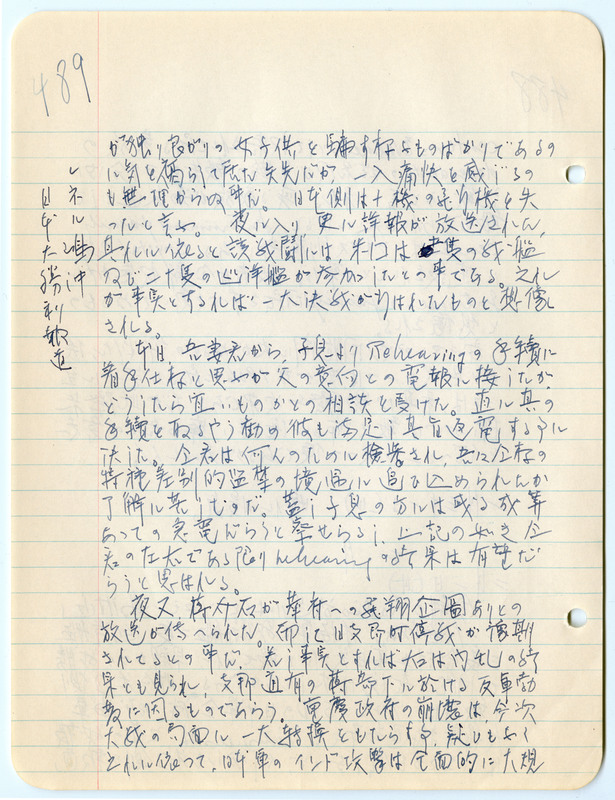 489
レネル島沖
日本大勝利報道
が独り忌がりの女子供を騙す様なものばかりであるの
に気を腐らして居た矢先だから一入痛快を感じるの
も無理からぬ事だ。日本側は十機の飛行機を失
ったと言ふ。夜に入り更に詳報が放送された。
其れに依ると該戦闘には、米国は 隻の戦艦
及び二十隻の巡洋艦が参加したとの事である。之れ
が事実とすれば一大決戦が行はれたものと想像
される。
本日 君から、子息より Rehearing の手続に
着手仕様と思ふが父の意向との電報に接したが
どうしたら宜いものかとの相談を受けた。直に其の
手続を取るやう勧め彼も満足し其旨返電する事に
決した。 君は何んのために検挙され、 の
特種差別的監禁の境遇に追ひ込められたか
了解に苦しむものだ。蓋し子息の方には或る成算
あっての急電だらうと察せらるゝ、上記の如き
君の立太である限り rehearing の結果は有望だ
らうと思はれる。
夜又、蒋介石が 府への飛翔企図ありとの
放送が伝へられた。而して日支即時停戦が予期
されてるとの事だ。若し事実とすれば右は内乱の結
果とも見られ、支那 有の蒋部下に於ける反軍動
に因るものであらう。重慶政府の崩潰は、今次
大戦の局面に一大転換をもたらす事疑ひもなく
之れに依つて、日本軍のインド攻撃は全面的に大規